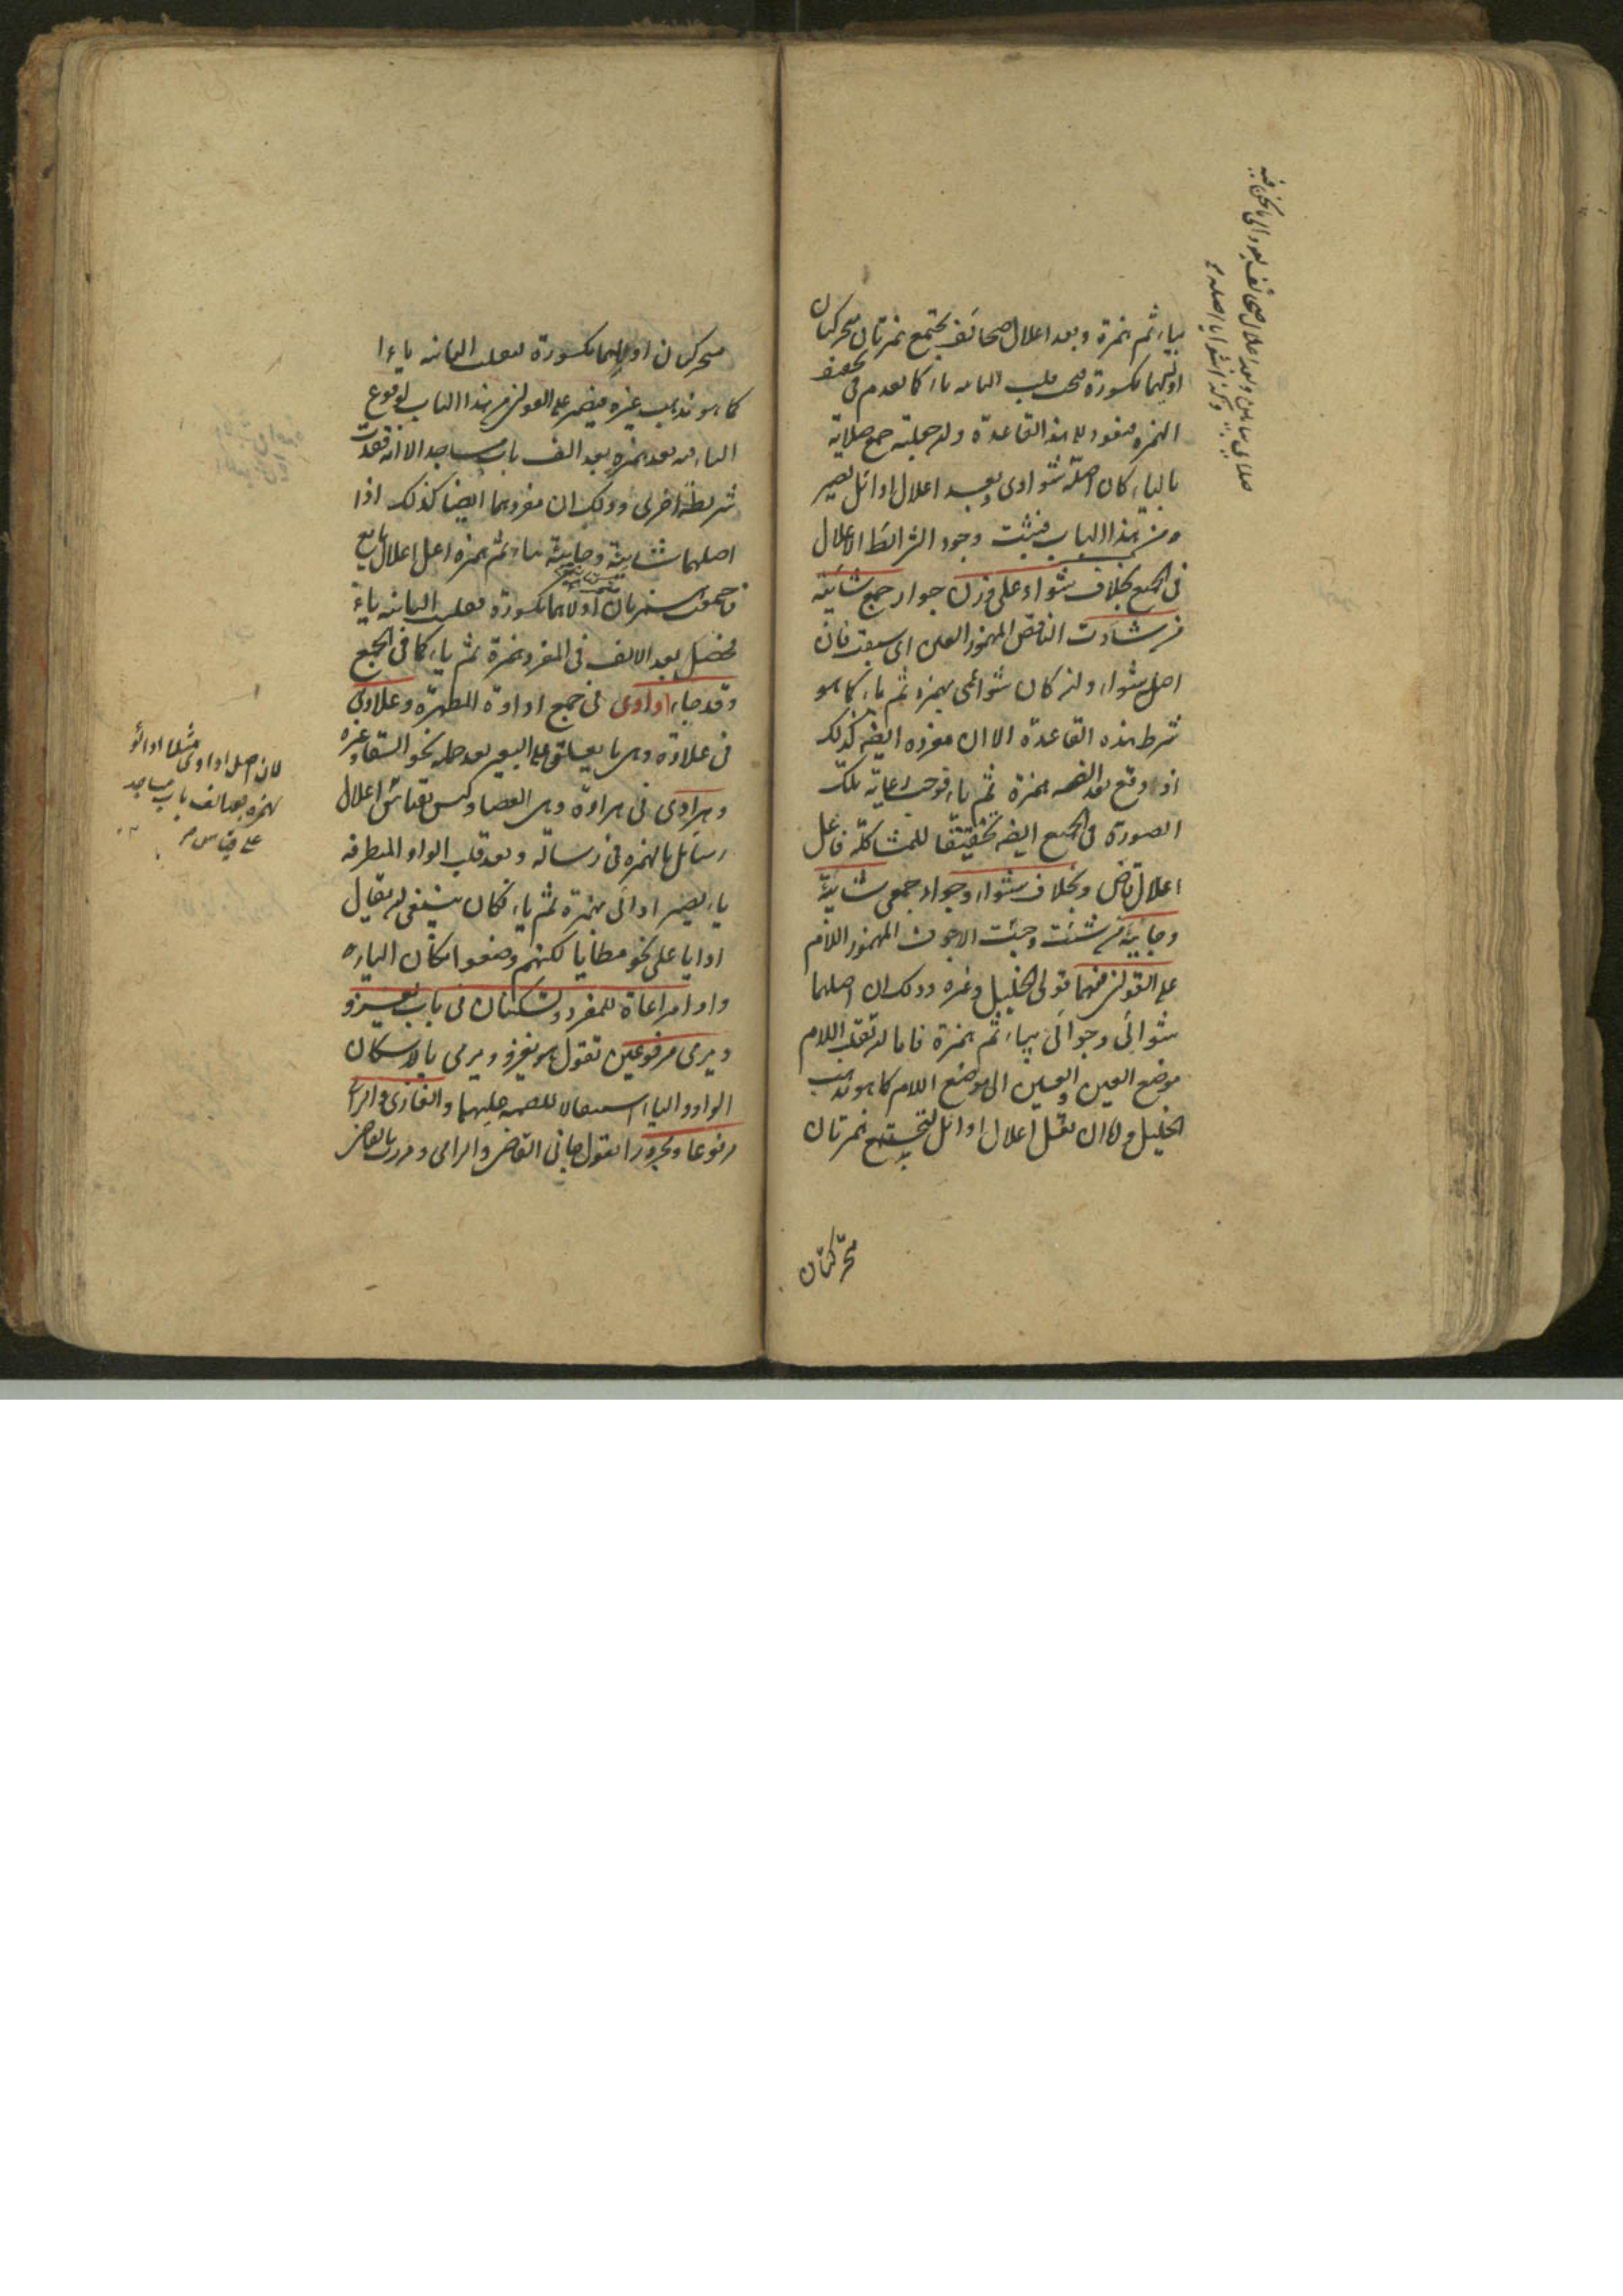 بياء ثم همزة وبعد اعلال صحائف يجتمع همزتان متحركتان
اوليهما مكسورة فيجب قلب الثانيه ياء كما تقدم فى تخفيف
الهمزه فيعود الى هذه القاعدة وان جعلته جمع صلاية
بالياء كان اصله شواوى وبعد اعلال اوائل يصير
من هذا الباب فيثبت وجود الشرائط الاعلال
فى الجمع بخلاف شواء على وزن جوار جمع شائية
من شاوت الناقص المهموز العين اى سبقت فان
اصل شواء وان كان شوائى بهمزه ثم ياء كما هو
شرط هذه القاعدة الا ان مفرده ايضا كذلك
اذ وقع بعد الفه همزة ثم ياء فوجب رعاية تلك
الصورة فى الجمع ايضا تحقيقا للمشاكلة فاعل
اعلال قاض وبخلاف شواء وجواء جمعى شائية
وجائية من شئت وجئت الاجوف المهموز اللام
على القولين فيهما قولى الخليل وغيره وذلك ان اصلهما
شوائى وجوائى بياء ثم همزة فاما ان تقلب اللام
موضع العين والعين الى موضع اللام كما هو مذهب
الخليل واما ان تقبل اعلال اوائل فتجتمع همزتان
متحركتان
متحركتان اوليهما مكسورة فقلبت الثانيه ياء
كما هو مذهب غيره فيصير على القولين من هذا الباب لوقوع
الياء فيه بعد همزه بعد الف باب مساجد الا انه فقدت
شريطة اخرى وذلك ان مفردهما ايضا كذلك اذا
اصلهما شايئة وجايئة بياء ثم همزه اعل اعلال بايع
فاجتمعت همزتان اولاهما مكسورة فقلبت الثانيه ياء
فحصل بعد الالف فى المفرد همزة ثم ياء كما فى الجمع
وقد جاء اداوى فى جمع اداوة المطهرة وعلاوى
فى علاوة وهى ما يعلق على البعير بعد حمله نحو السقاء وغيره
وهراوى فى هراوة وهى العصا وليس بقياس اعلال
رسائل بالهمزه فى رسالة وبعد قلب الواو المتطرفه
ياء يصير ادائى بهمزة ثم ياء فكان ينبغى ان يقال
ادايا على نحو مطايا لكنهم وضعوا مكان الياء
واوا مراعاة للمفرد وتسكنان فى باب يغزو
ويرمى مرفوعين تقول هو يغزو ويرمى بالاسكان
الواو والياء استثقالا للضمه عليهما والغازى والرامى
مرفوعا ومجرورا تقول جاءنى القاضى والرامى ومررت بالقاضى
لان اصل اداوى مثلا ادائو
بهمزه بعد الف باب مساجد
على قياس